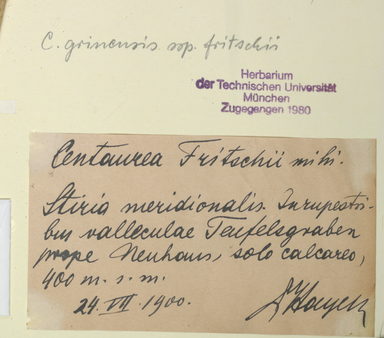 C. grinensis ssp. fritschii
Herbarium
der Technischen Universität
München
Zugegangen 1980
Centaurea Fritschii mihi.
Stiria meridionalis. In rupestri-
bus valleculae Teufelsgraben
prope Neuhaus, solo calcareo,
400 m. s. m.
24. VII. 1900.
Hayek